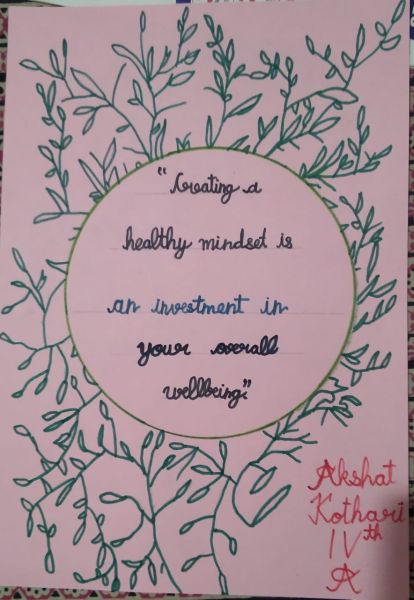 "Creating a
healthy mindset is
an investment in
your overall
wellbeing."
Akshat
Kothari
IVth
A